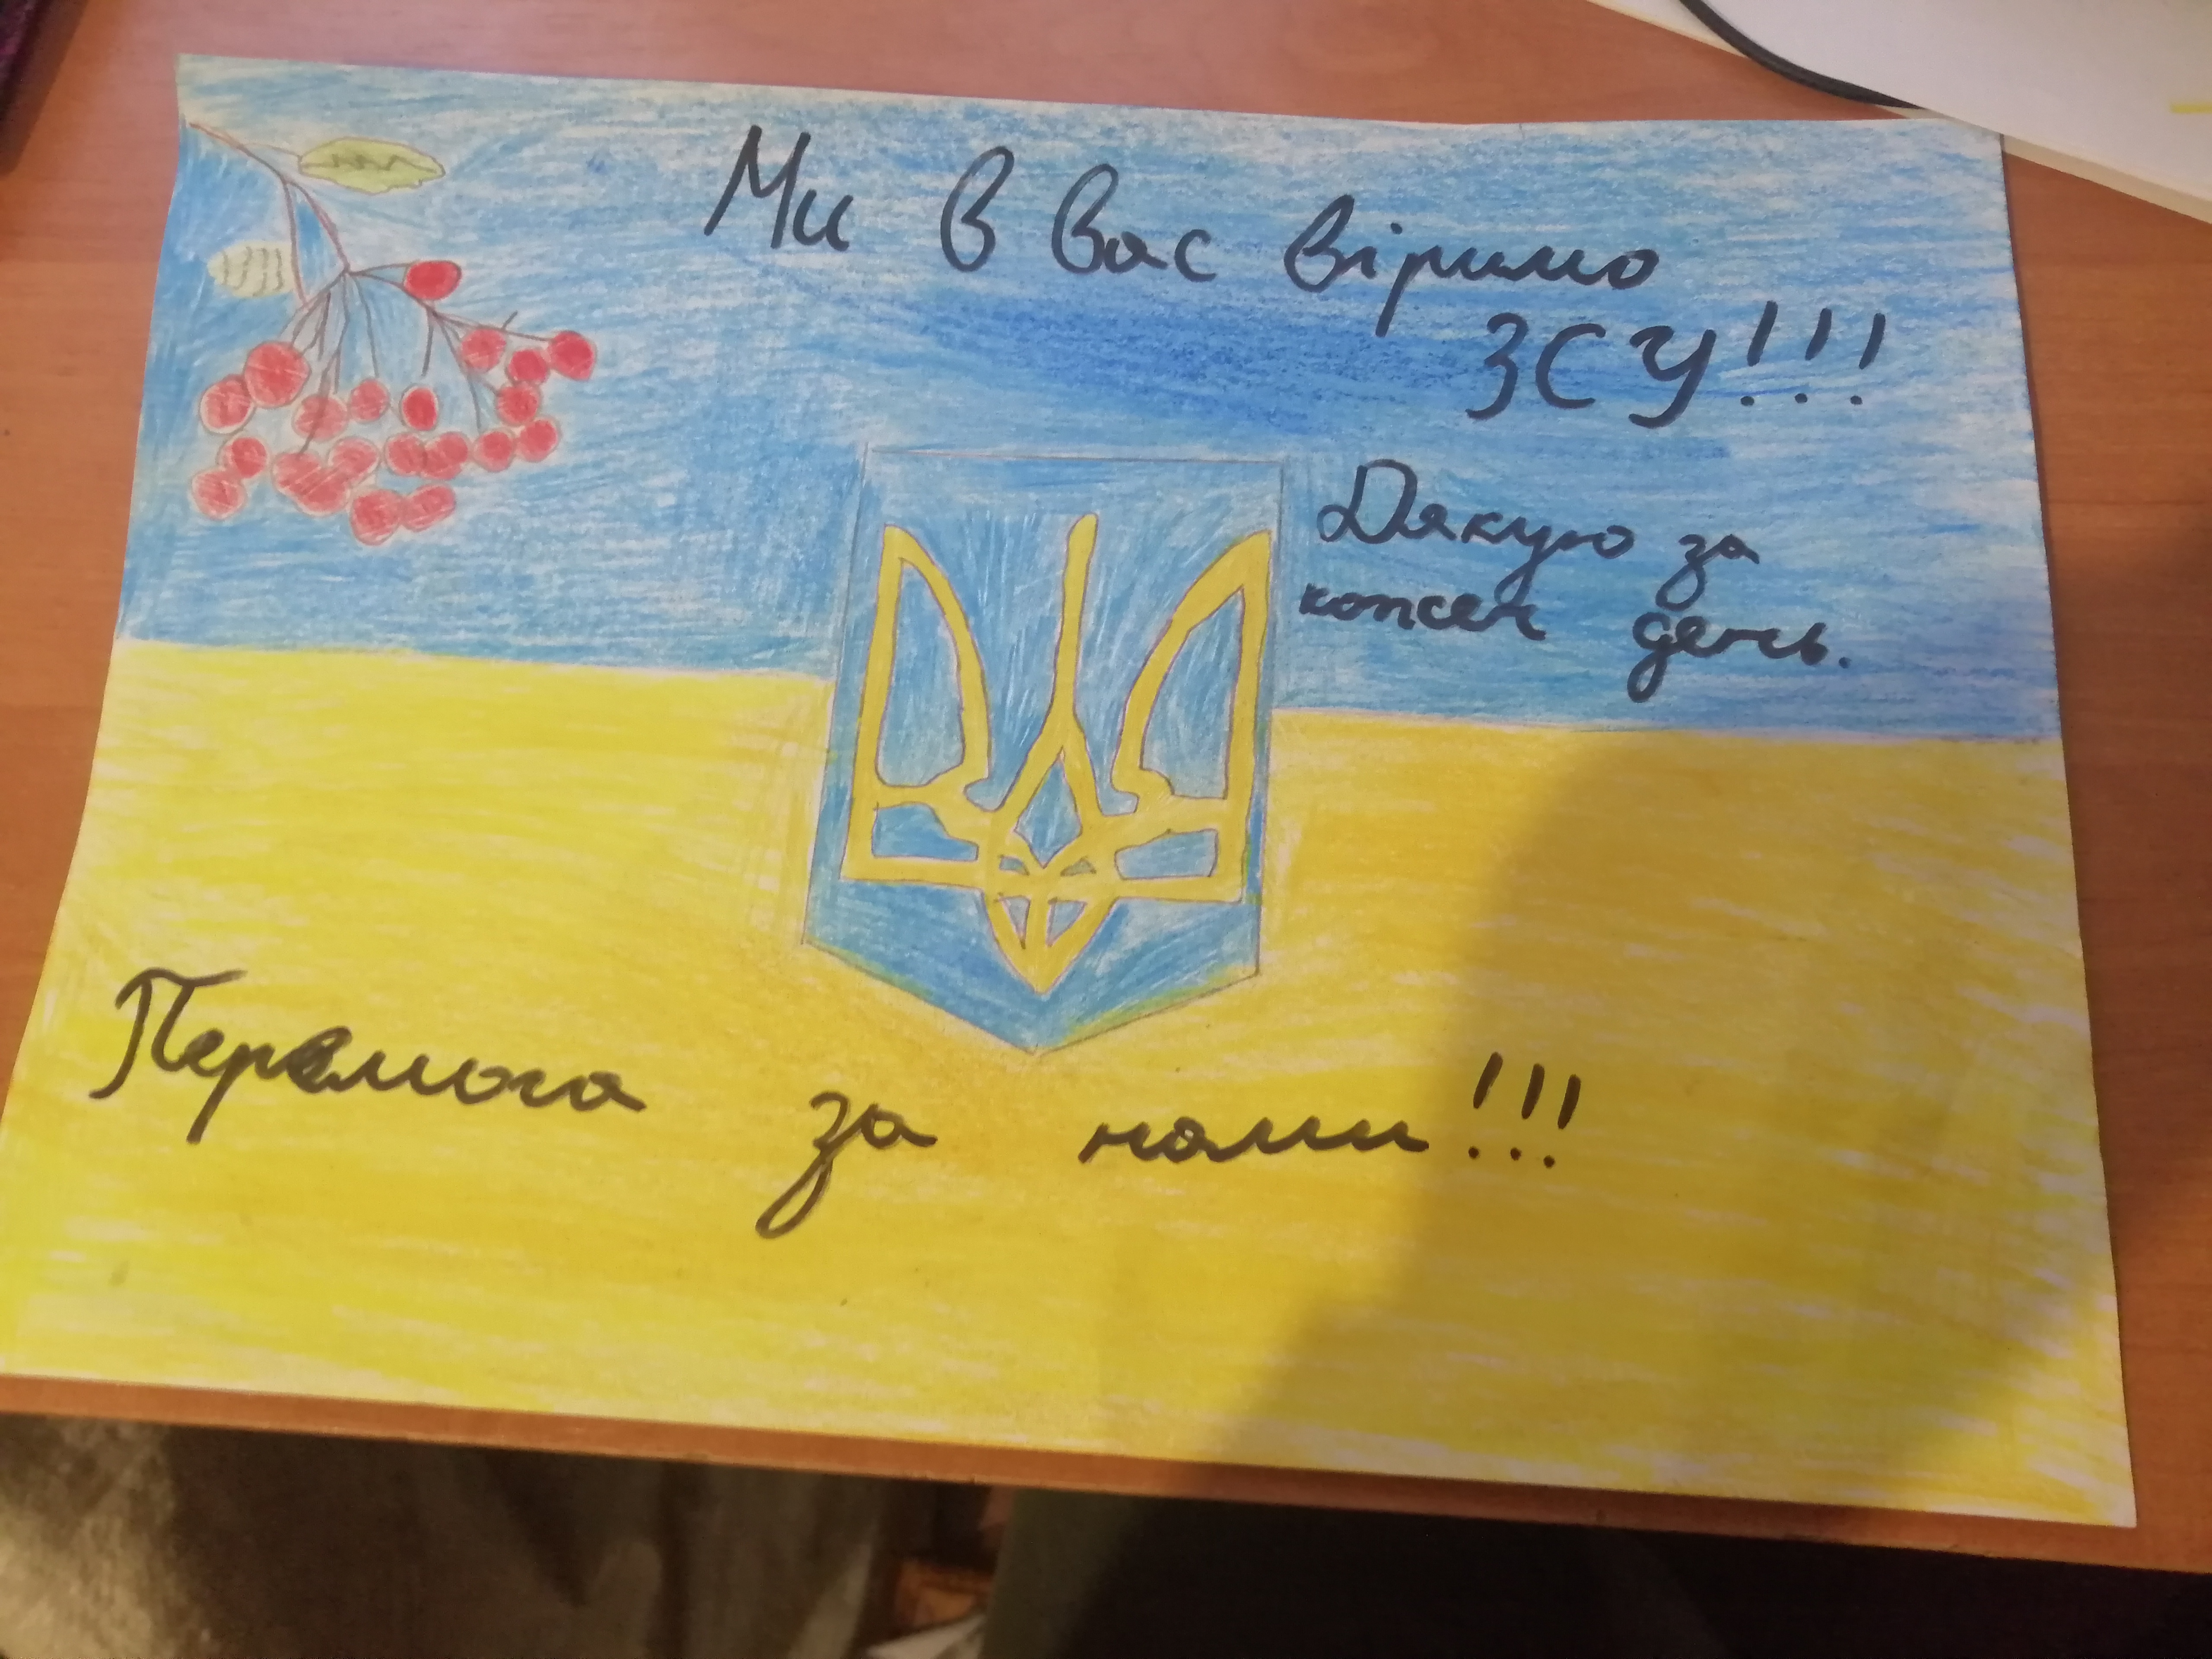 Ми в вас віримо
ЗСУ!!!
Дякую за
кожен день.
Перемога за нами!!!